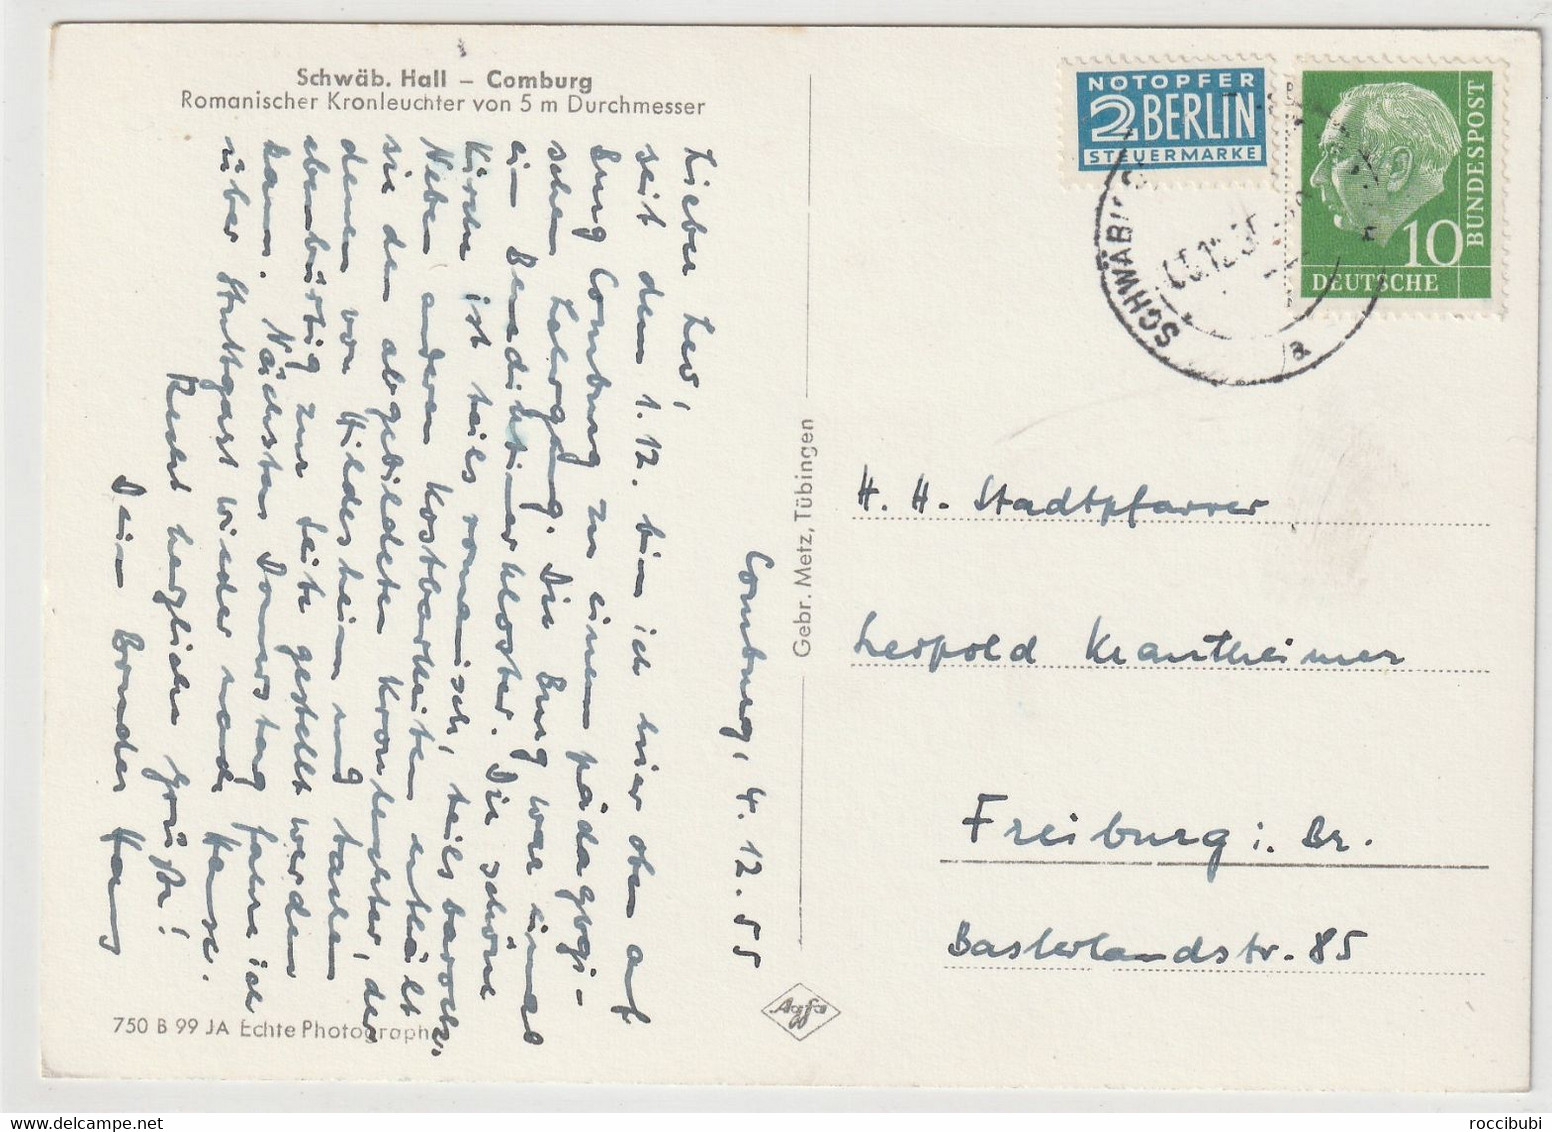 Schwäb. Hall – Comburg
Romanischer Kronleuchter von 5 m Durchmesser
Comburg, 4.12.55
Lieber Leo!
seit dem 1.12. bin ich hier oben auf
Burg Comburg zu einem pädagogi-
schen Lehrgang. Die Burg war einst
ein Benediktinerkloster. Die schöne
Kirche ist teils romanisch, teils barock.
Neben anderen Kostbarkeiten enthält
sie den abgebildeten Kronleuchter, der
denen von Hildesheim und
ebenbürtig zur Seite gestellt werden
kann. Nächsten Donnerstag fahre ich
über Stuttgart wieder nach Hause.
Recht herzliche Grüße!
Dein Bruder Hans
750 B 99 JA Echte Photographie
Gebr. Metz, Tübingen
Agfa
NOTOPFER
2 BERLIN
STEUERMARKE
10
DEUTSCHE
BUNDESPOST
SCHWÄBISCH
a
H. H. Stadtpfarrer
Leopold Krantheimer
Freiburg i. Br.
Baslerlandstr. 85
roccibubi